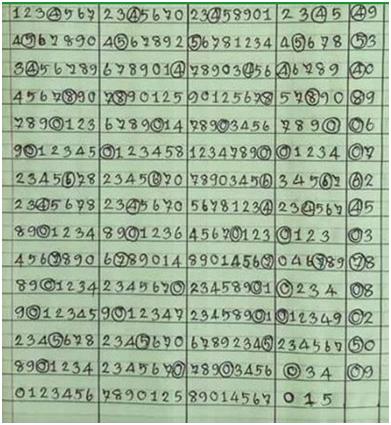 1234567 2345670 23458901 2345 49
4567890 4567892 56781234 45678 53
3456789 6789014 78903456 46789 40
4567890 7890125 90125678 57890 89
7890123 6789014 78903456 7890 06
9012345 0123458 12347890 01234 07
2345678 2345670 78903456 34567 62
2345678 2345670 56781234 234567 45
8901234 8901236 45670123 0123 03
4567890 6789014 89014567 046789 78
8901234 2345670 23458901 0234 08
9012345 9012347 23458901 012349 02
2345678 2345670 67892345 234567 50
8901234 2345670 78903456 034 09
0123456 7890125 89014567 015